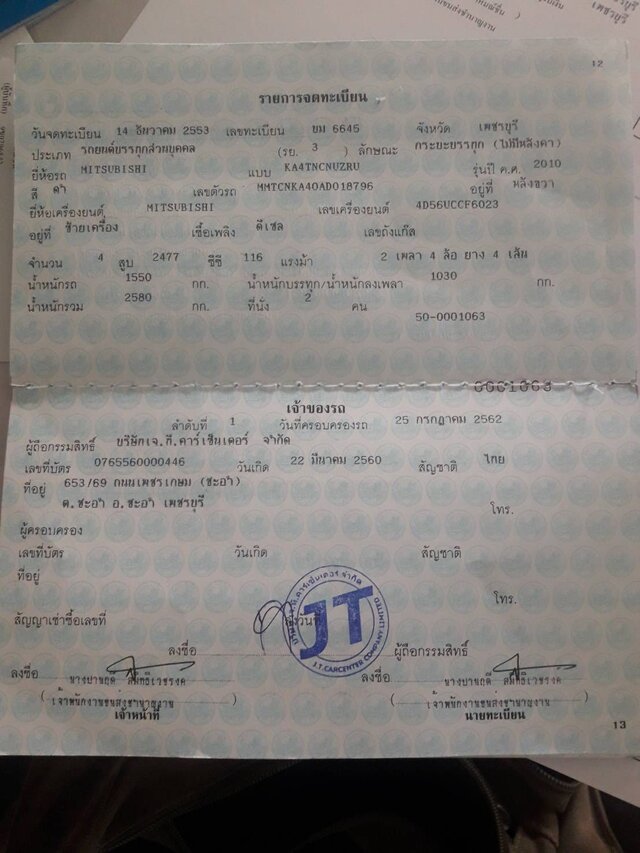 12
รายการจดทะเบียน
วันจดทะเบียน 14 ธันวาคม 2553 เลขทะเบียน ยม 6645 จังหวัด เพชรบุรี
ประเภท รถยนต์บรรทุกส่วนบุคคล (รย. 3 ) ลักษณะ กระบะบรรทุก (ไม่มีหลังคา)
ยี่ห้อรถ MITSUBISHI แบบ KA4TNCNUZRU รุ่นปี ค.ศ. 2010
สี ดำ เลขตัวรถ MMTCNKA40AD018796 อยู่ที่ หลังขวา
ยี่ห้อเครื่องยนต์ MITSUBISHI เลขเครื่องยนต์ 4D56UCCF6023
อยู่ที่ ซ้ายเครื่อง เชื้อเพลิง ดีเซล เลขถังแก๊ส
จำนวน 4 สูบ 2477 ซีซี 116 แรงม้า 2 เพลา 4 ล้อ ยาง 4 เส้น
น้ำหนักรถ 1550 กก. น้ำหนักบรรทุก/น้ำหนักลงเพลา 1030 กก.
น้ำหนักรวม 2580 กก. ที่นั่ง 2 คน
50-0001063
0001063
เจ้าของรถ
ลำดับที่ 1 วันที่ครอบครองรถ 25 กรกฎาคม 2562
ผู้ถือกรรมสิทธิ์ บริษัทเจ.ที.คาร์เซ็นเตอร์ จำกัด
เลขที่บัตร 0765560000446 วันเกิด 22 มีนาคม 2560 สัญชาติ ไทย
ที่อยู่ 653/69 ถนนเพชรเกษม (ชะอำ)
ต.ชะอำ อ.ชะอำ เพชรบุรี โทร.
ผู้ครอบครอง
เลขที่บัตร วันเกิด สัญชาติ
ที่อยู่
โทร.
สัญญาเช่าซื้อเลขที่ ลงวันที่
JT
J.T.CARCENTER COMPANY LIMITED
ลงชื่อ ผู้ถือกรรมสิทธิ์
ลงชื่อ ลงชื่อ
(เจ้าพนักงานขนส่งชำนาญงาน) (เจ้าพนักงานขนส่งชำนาญงาน)
เจ้าหน้าที่ นายทะเบียน
13